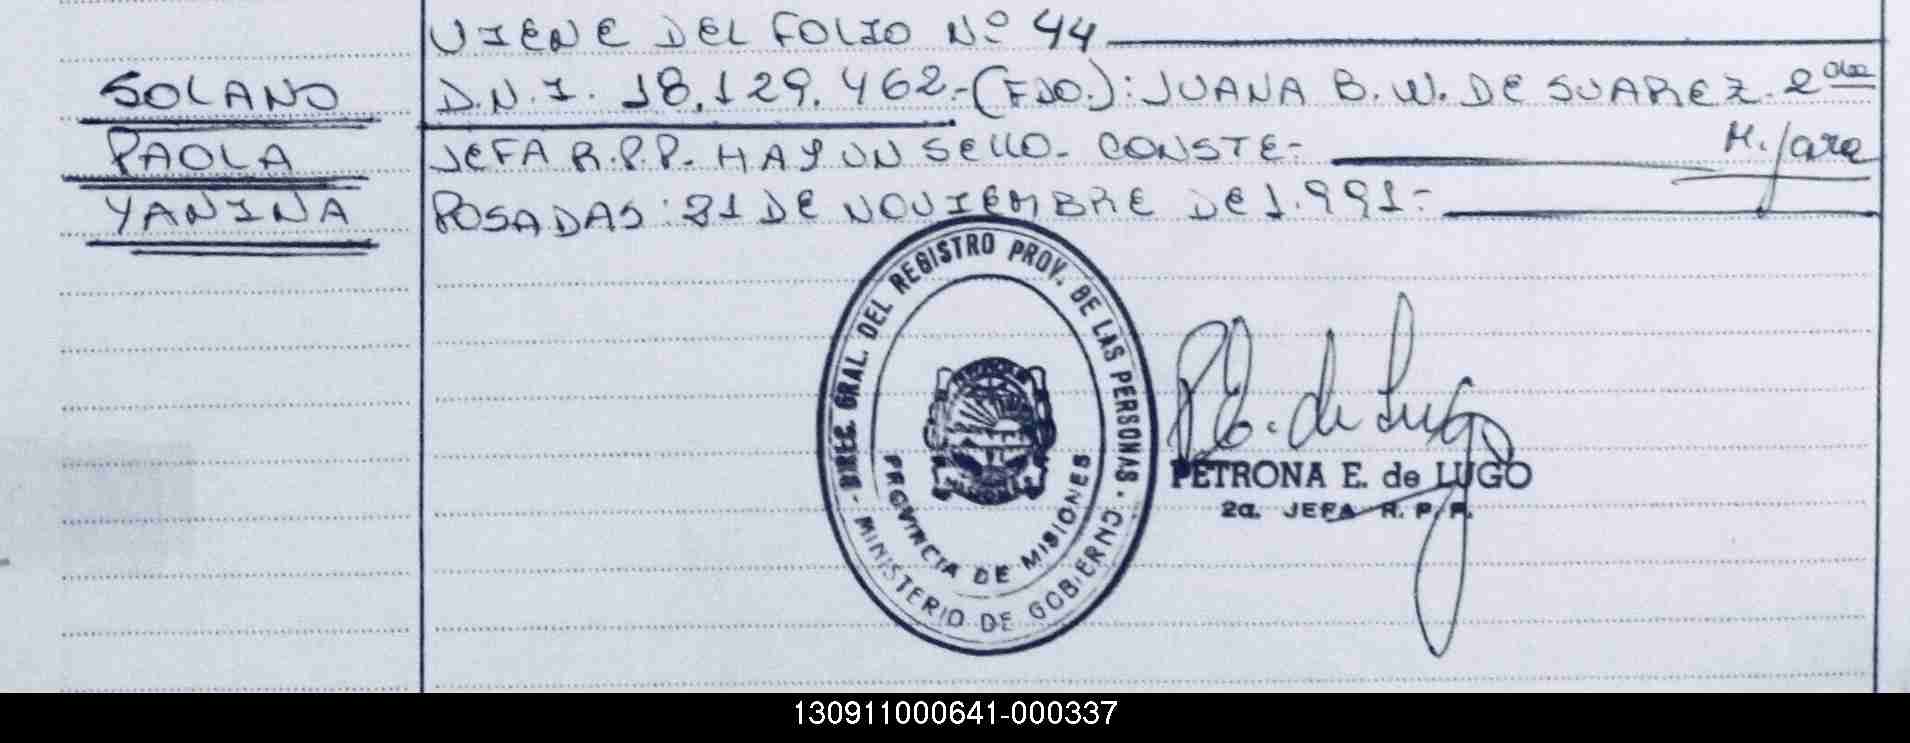 VIENE DEL FOLIO Nº 44
SOLANO
PAOLA
YANINA
D.N.I. 18.129.462.-(FDO.): JUANA B. W. DE SUAREZ. 2da
JEFA R.P.P. HAY UN SELLO. CONSTE-
M. Jara
POSADAS: 21 DE NOVIEMBRE DE 1.991-
DIREC. GRAL. DEL REGISTRO PROV. DE LAS PERSONAS
- MINISTERIO DE GOBIERNO
PROVINCIA DE MISIONES
P.E. de Lugo
PETRONA E. de LUGO
2a. JEFA R. P. P.
130911000641-000337